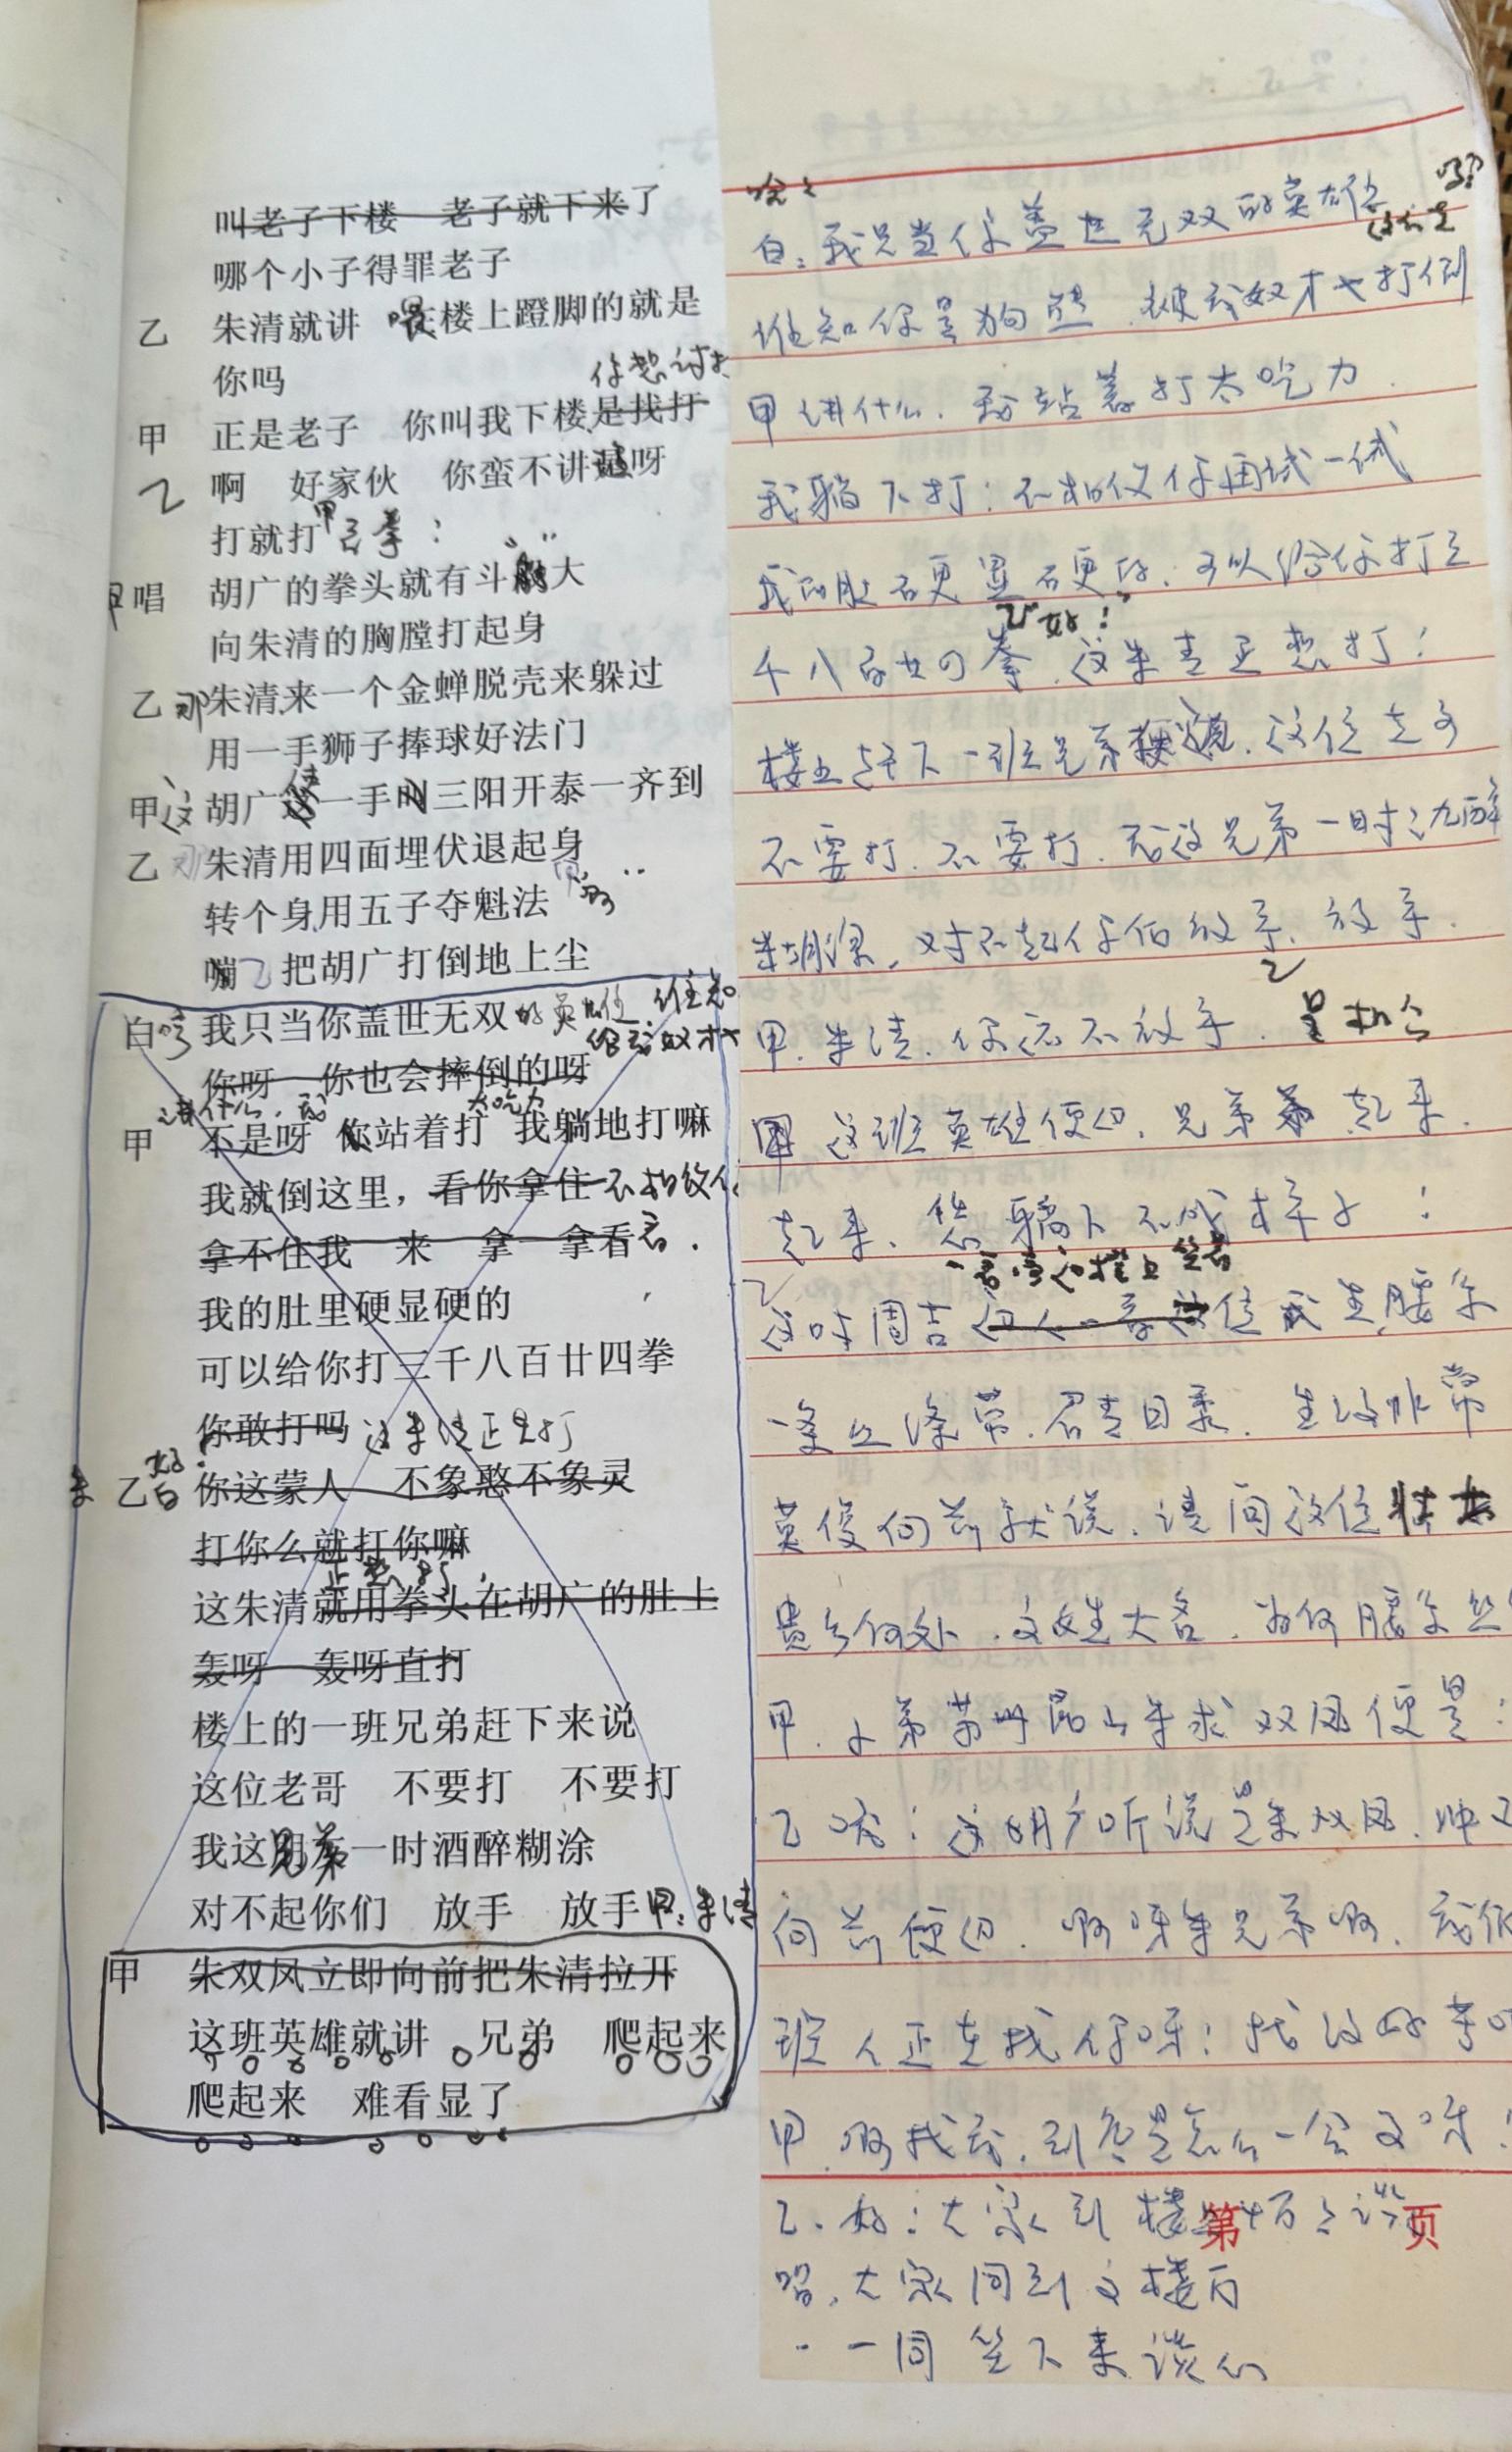 叫老子下楼 老子就下来了
哪个小子得罪老子
乙 朱清就讲 楼上蹬脚的就是
你吗
你想讨打
甲 正是老子 你叫我下楼是找打
乙 啊 好家伙 你蛮不讲 呀
打就打 甲 拳：
甲唱 胡广的拳头就有斗 大
向朱清的胸膛打起身
乙 那朱清来一个金蝉脱壳来躲过
用一手狮子捧球好法门
甲 这 胡广 一手叫三阳开泰一齐到
乙 那 朱清用四面埋伏退起身
转个身用五子夺魁法
嘣 把胡广打倒地上尘
白 我只当你盖世无双的英雄 谁知
你呀 你也会摔倒的呀
讲什么 太吃力
甲 不是呀 你站着打 我躺地打嘛
我就倒这里，看你拿住 不相仪你
拿不住我 来 拿一拿看
我的肚里硬显硬的
可以给你打三千八百廿四拳
你敢打吗 这朱清正想打
好！
朱 乙白 你这蒙人 不象憨不象灵
打你么就打你嘛
正想打
这朱清就用拳头在胡广的肚上
轰呀 轰呀直打
楼上的一班兄弟赶下来说
这位老哥 不要打 不要打
我这兄弟一时酒醉糊涂
对不起你们 放手 放手 甲：朱清
甲 朱双风立即向前把朱清拉开
这班英雄就讲 兄弟 爬起来
爬起来 难看显了
白：我只当你盖世无双的英雄
谁知你是狗熊 被我奴才打倒
甲 讲什么．我站着打太吃力
我躺下打：不相仪你再试一试
我的肚 硬显硬的．可以给你打三
乙 好！
千八百廿四拳．这朱清正想打！
楼上赶下一班兄弟 说．这位老哥
不要打．不要打．我这兄弟一时酒醉
糊涂．对不起你们放手．放手．
甲．朱清．你还不放手．
甲 这班英雄便曰．兄弟 起来．
起来．您躺下不成样子！
这时周吉 这位 生 腰系
英俊向前 说．请问这位壮士
贵乡何处．高姓大名．为何腰系丝
甲．小弟苏州昆山朱求双凤便是：
乙 ：这胡广听说是朱双凤．
向前便曰．啊呀朱兄弟啊．我们
班人正在找你呀！找的好苦
甲．啊找我．到底是怎么一会事呀！
乙．好：大家到楼
第 页
唱．大家同到这楼
一同坐下来谈